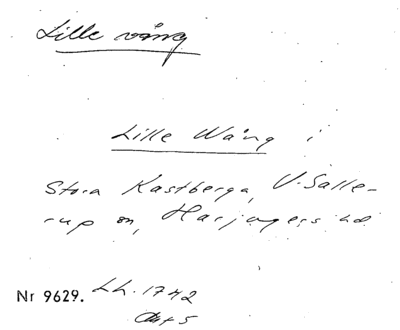 Lille vång
Lille Wång i
Stora Kastberga, V. Salle-
rup sn, Harjagers hd
Nr 9629. Lh. 1742
Akt 5